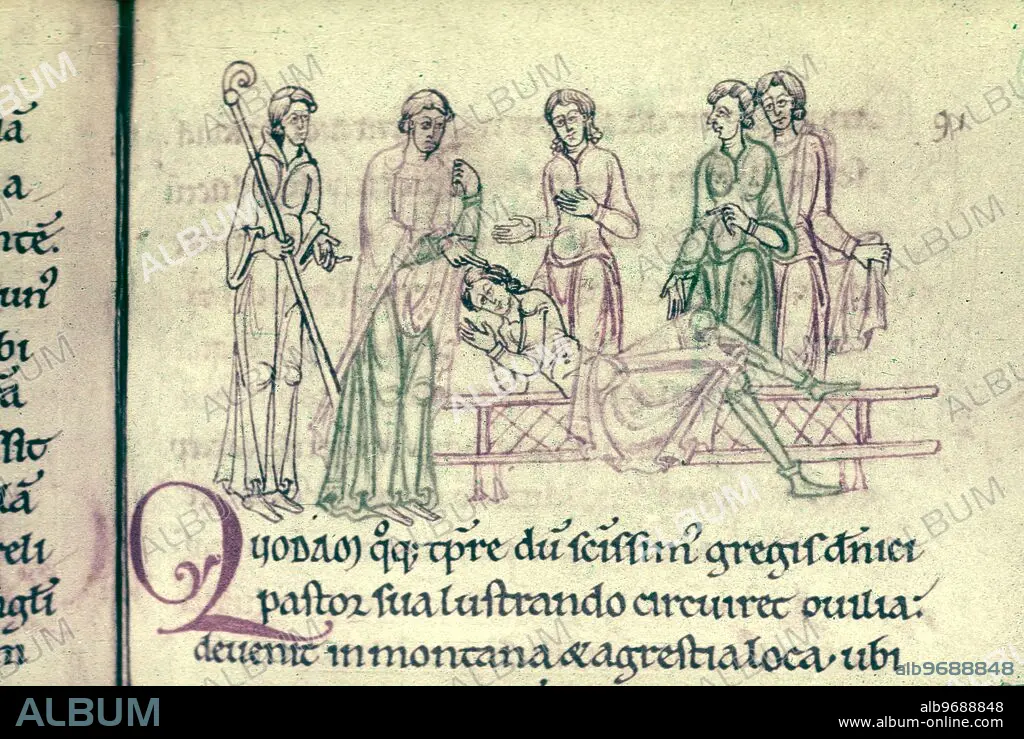 ıā
a
ntē.
unꝰ
bi
ā
ssit
lā
reli
ngłi
m
Quodam q̊q; tp̄re dū sc̄issimꝰ gregis dn̄ici
pastor sua lustrando circuiret ovilia:
devenit in montana & agrestia loca. ubi
ALBUM
alb9688848
ALBUM
alb9688848
www.album-online.com